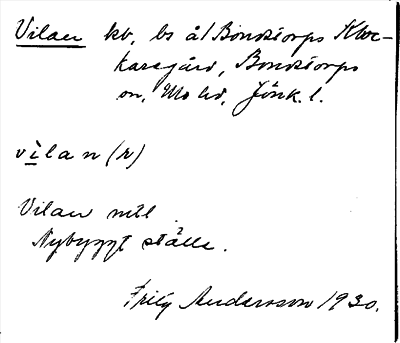 Vilan kv, bs å/Bondstorps Kloc-
karegård, Bondstorps
sn, Mo hd, Jönk. l.
vilan (r)
Vilan mtl
Nybyggt ställe.
Frity Andersson 1930.